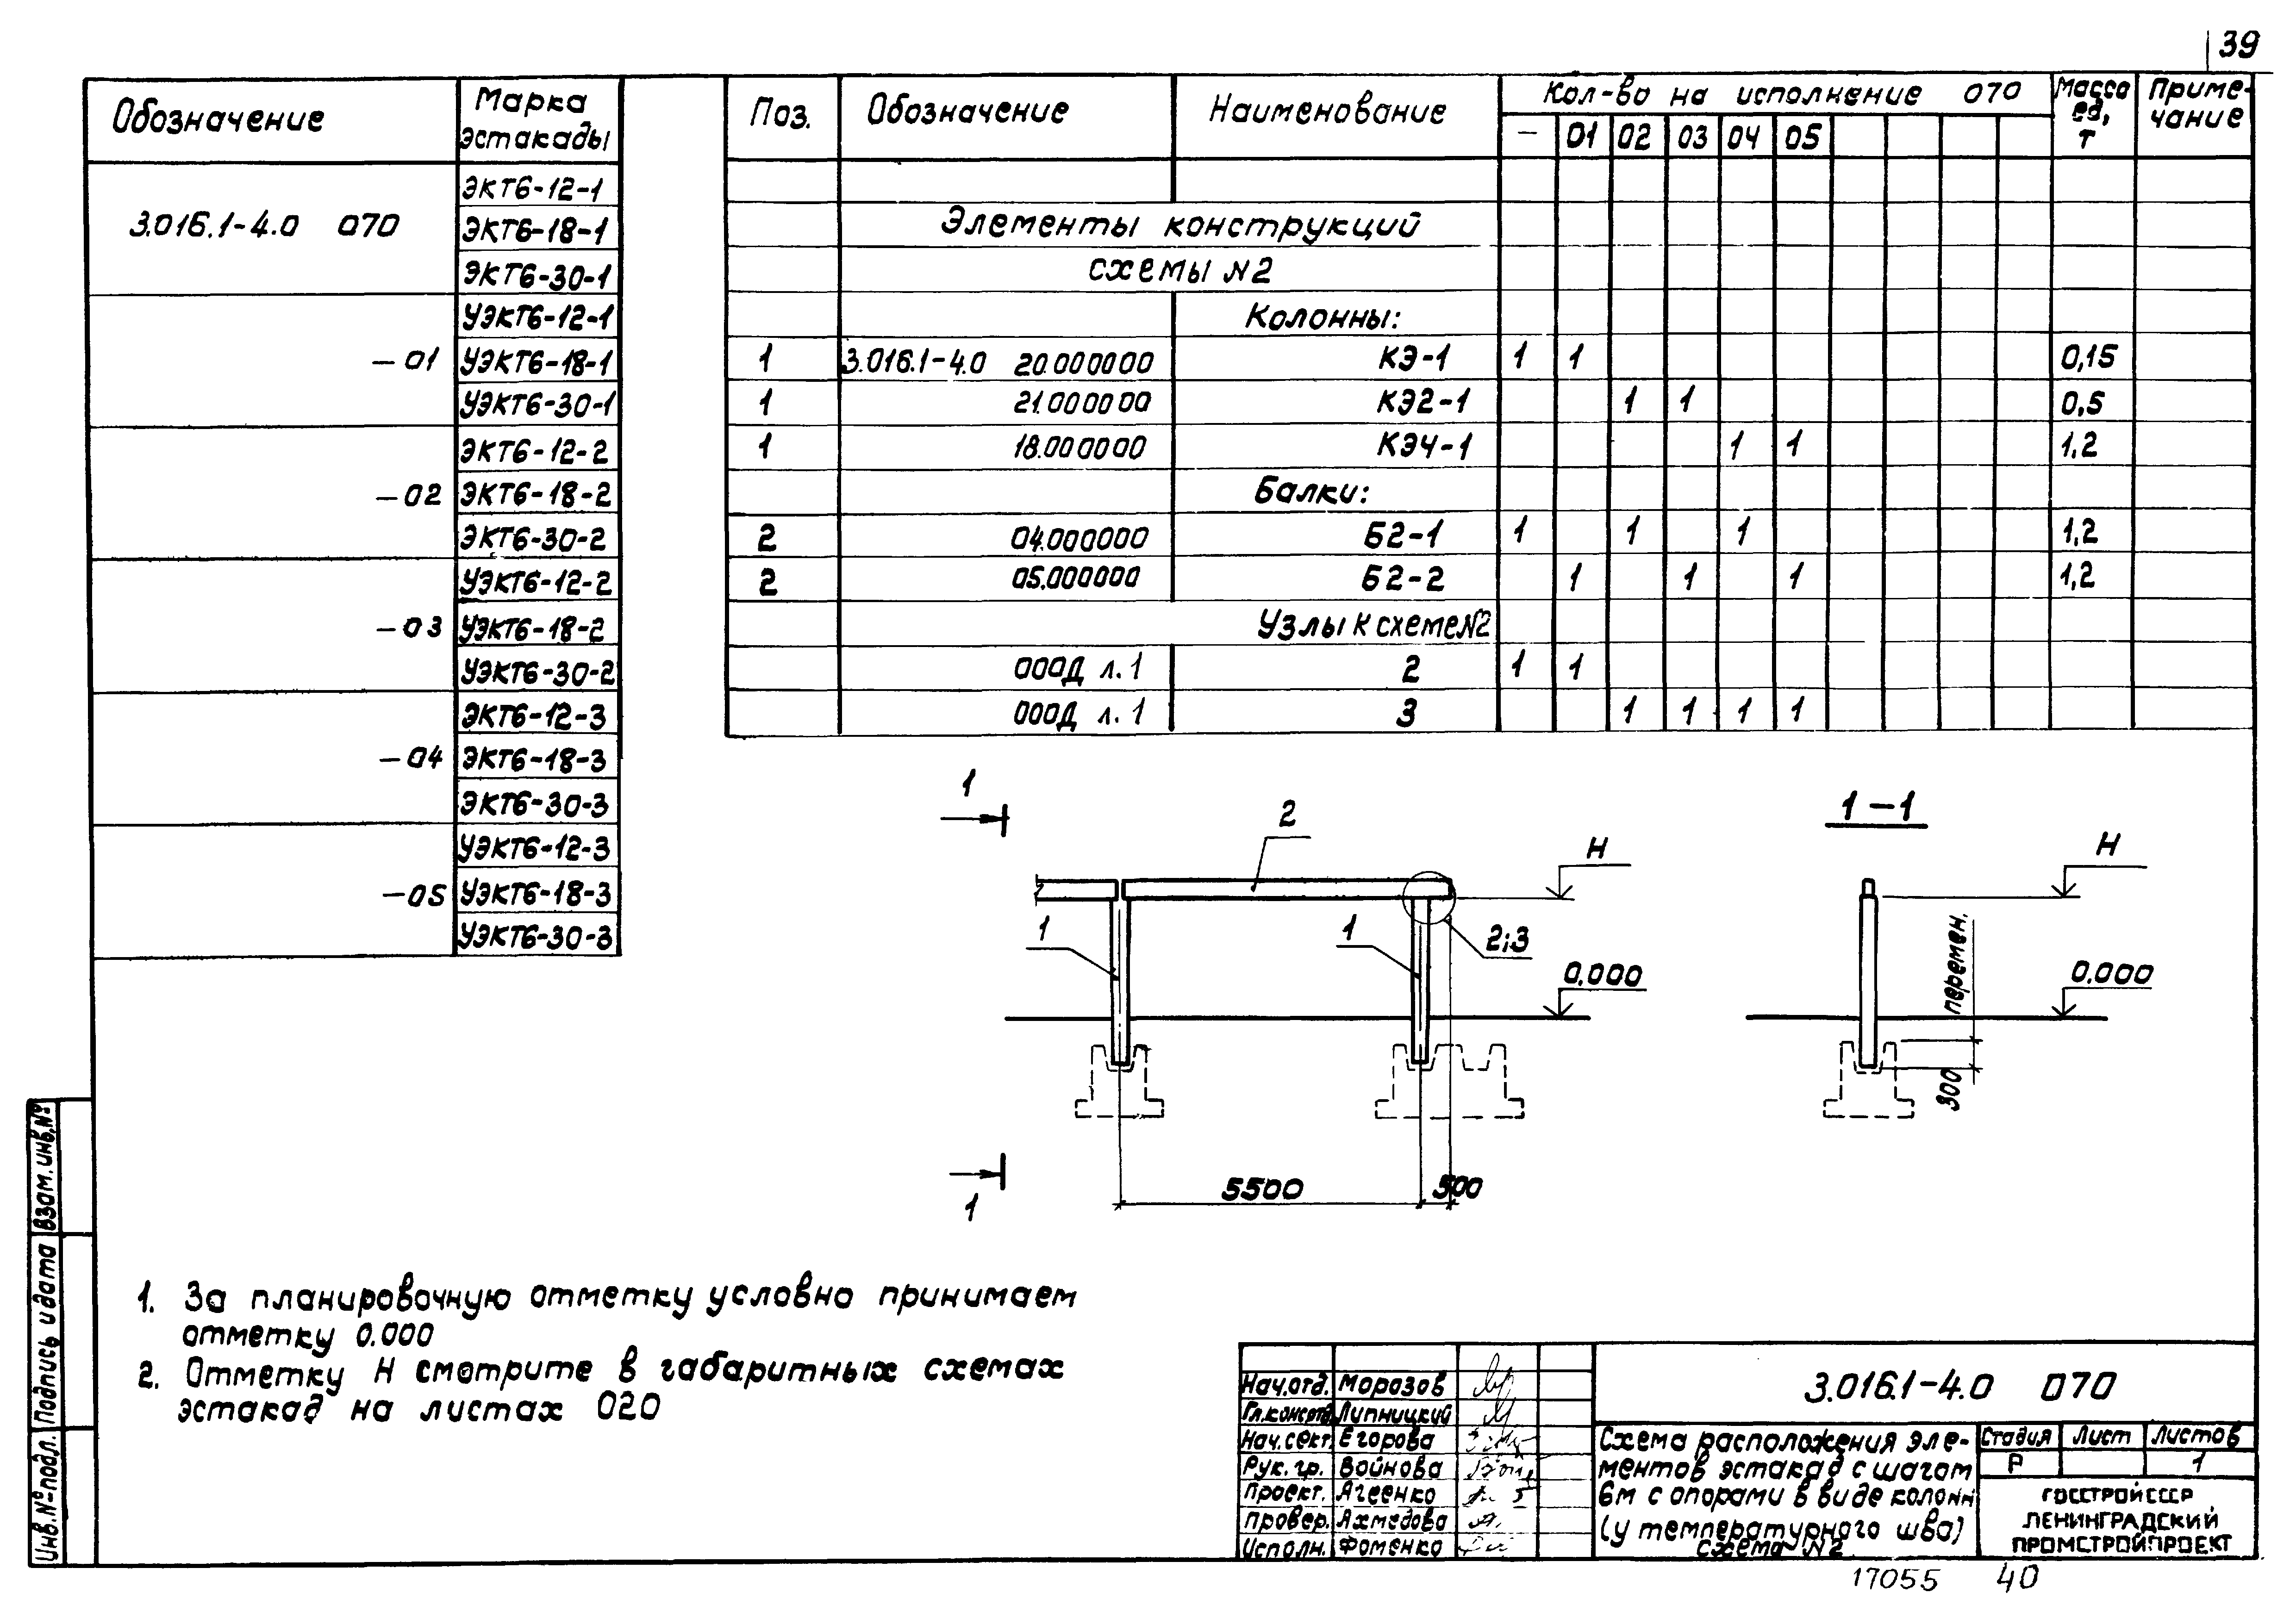 39
Обозначение Марка эстакады
3.016.1-4.0 070 ЭКТ6-12-1
ЭКТ6-18-1
ЭКТ6-30-1
-01 УЭКТ6-12-1
УЭКТ6-18-1
УЭКТ6-30-1
-02 ЭКТ6-12-2
ЭКТ6-18-2
ЭКТ6-30-2
-03 УЭКТ6-12-2
УЭКТ6-18-2
УЭКТ6-30-2
-04 ЭКТ6-12-3
ЭКТ6-18-3
ЭКТ6-30-3
-05 УЭКТ6-12-3
УЭКТ6-18-3
УЭКТ6-30-3
Поз. Обозначение Наименование Кол-во на исполнение 070 Масса ед, т Приме-чание
– 01 02 03 04 05
Элементы конструкций
схемы N2
Колонны:
1 3.016.1-4.0 20.000000 КЭ-1 1 1 0,15
1 21.000000 КЭ2-1 1 1 0,5
1 18.000000 КЭ4-1 1 1 1,2
Балки:
2 04.000000 Б2-1 1 1 1 1,2
2 05.000000 Б2-2 1 1 1 1,2
Узлы к схеме N2
000Д л.1 2 1 1
000Д л.1 3 1 1 1 1
1
2
Н
1
1
2;3
0,000
5500
500
1
1-1
Н
0,000
перемен.
300
1. За планировочную отметку условно принимаем
отметку 0.000
2. Отметку Н смотрите в габаритных схемах
эстакад на листах 020
Взам.инв.№
Подпись и дата
Инв.№подл.
Нач.отд. Морозов
Гл.констр. Липницкий
Нач.сект. Егорова
Рук.гр. Войнова
Проект. Агеенко
Провер. Ахмедова
Исполн. Фоменко
3.016.1-4.0 070
Схема расположения эле-
ментов эстакад с шагом
6м с опорами в виде колонн
(у температурного шва)
схема N2
Стадия Лист Листов
Р 1
ГОССТРОЙ СССР
ЛЕНИНГРАДСКИЙ
ПРОМСТРОЙПРОЕКТ
17055 40